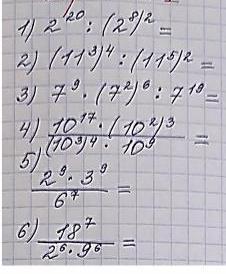 1) 2^20 : (2^8)^2 =
2) (11^3)^4 : (11^5)^2 =
3) 7^9 · (7^2)^6 : 7^19 =
4) 10^17 · (10^2)^3 / (10^3)^4 · 10^9 =
5) 2^9 · 3^9 / 6^7 =
6) 18^7 / 2^6 · 9^6 =